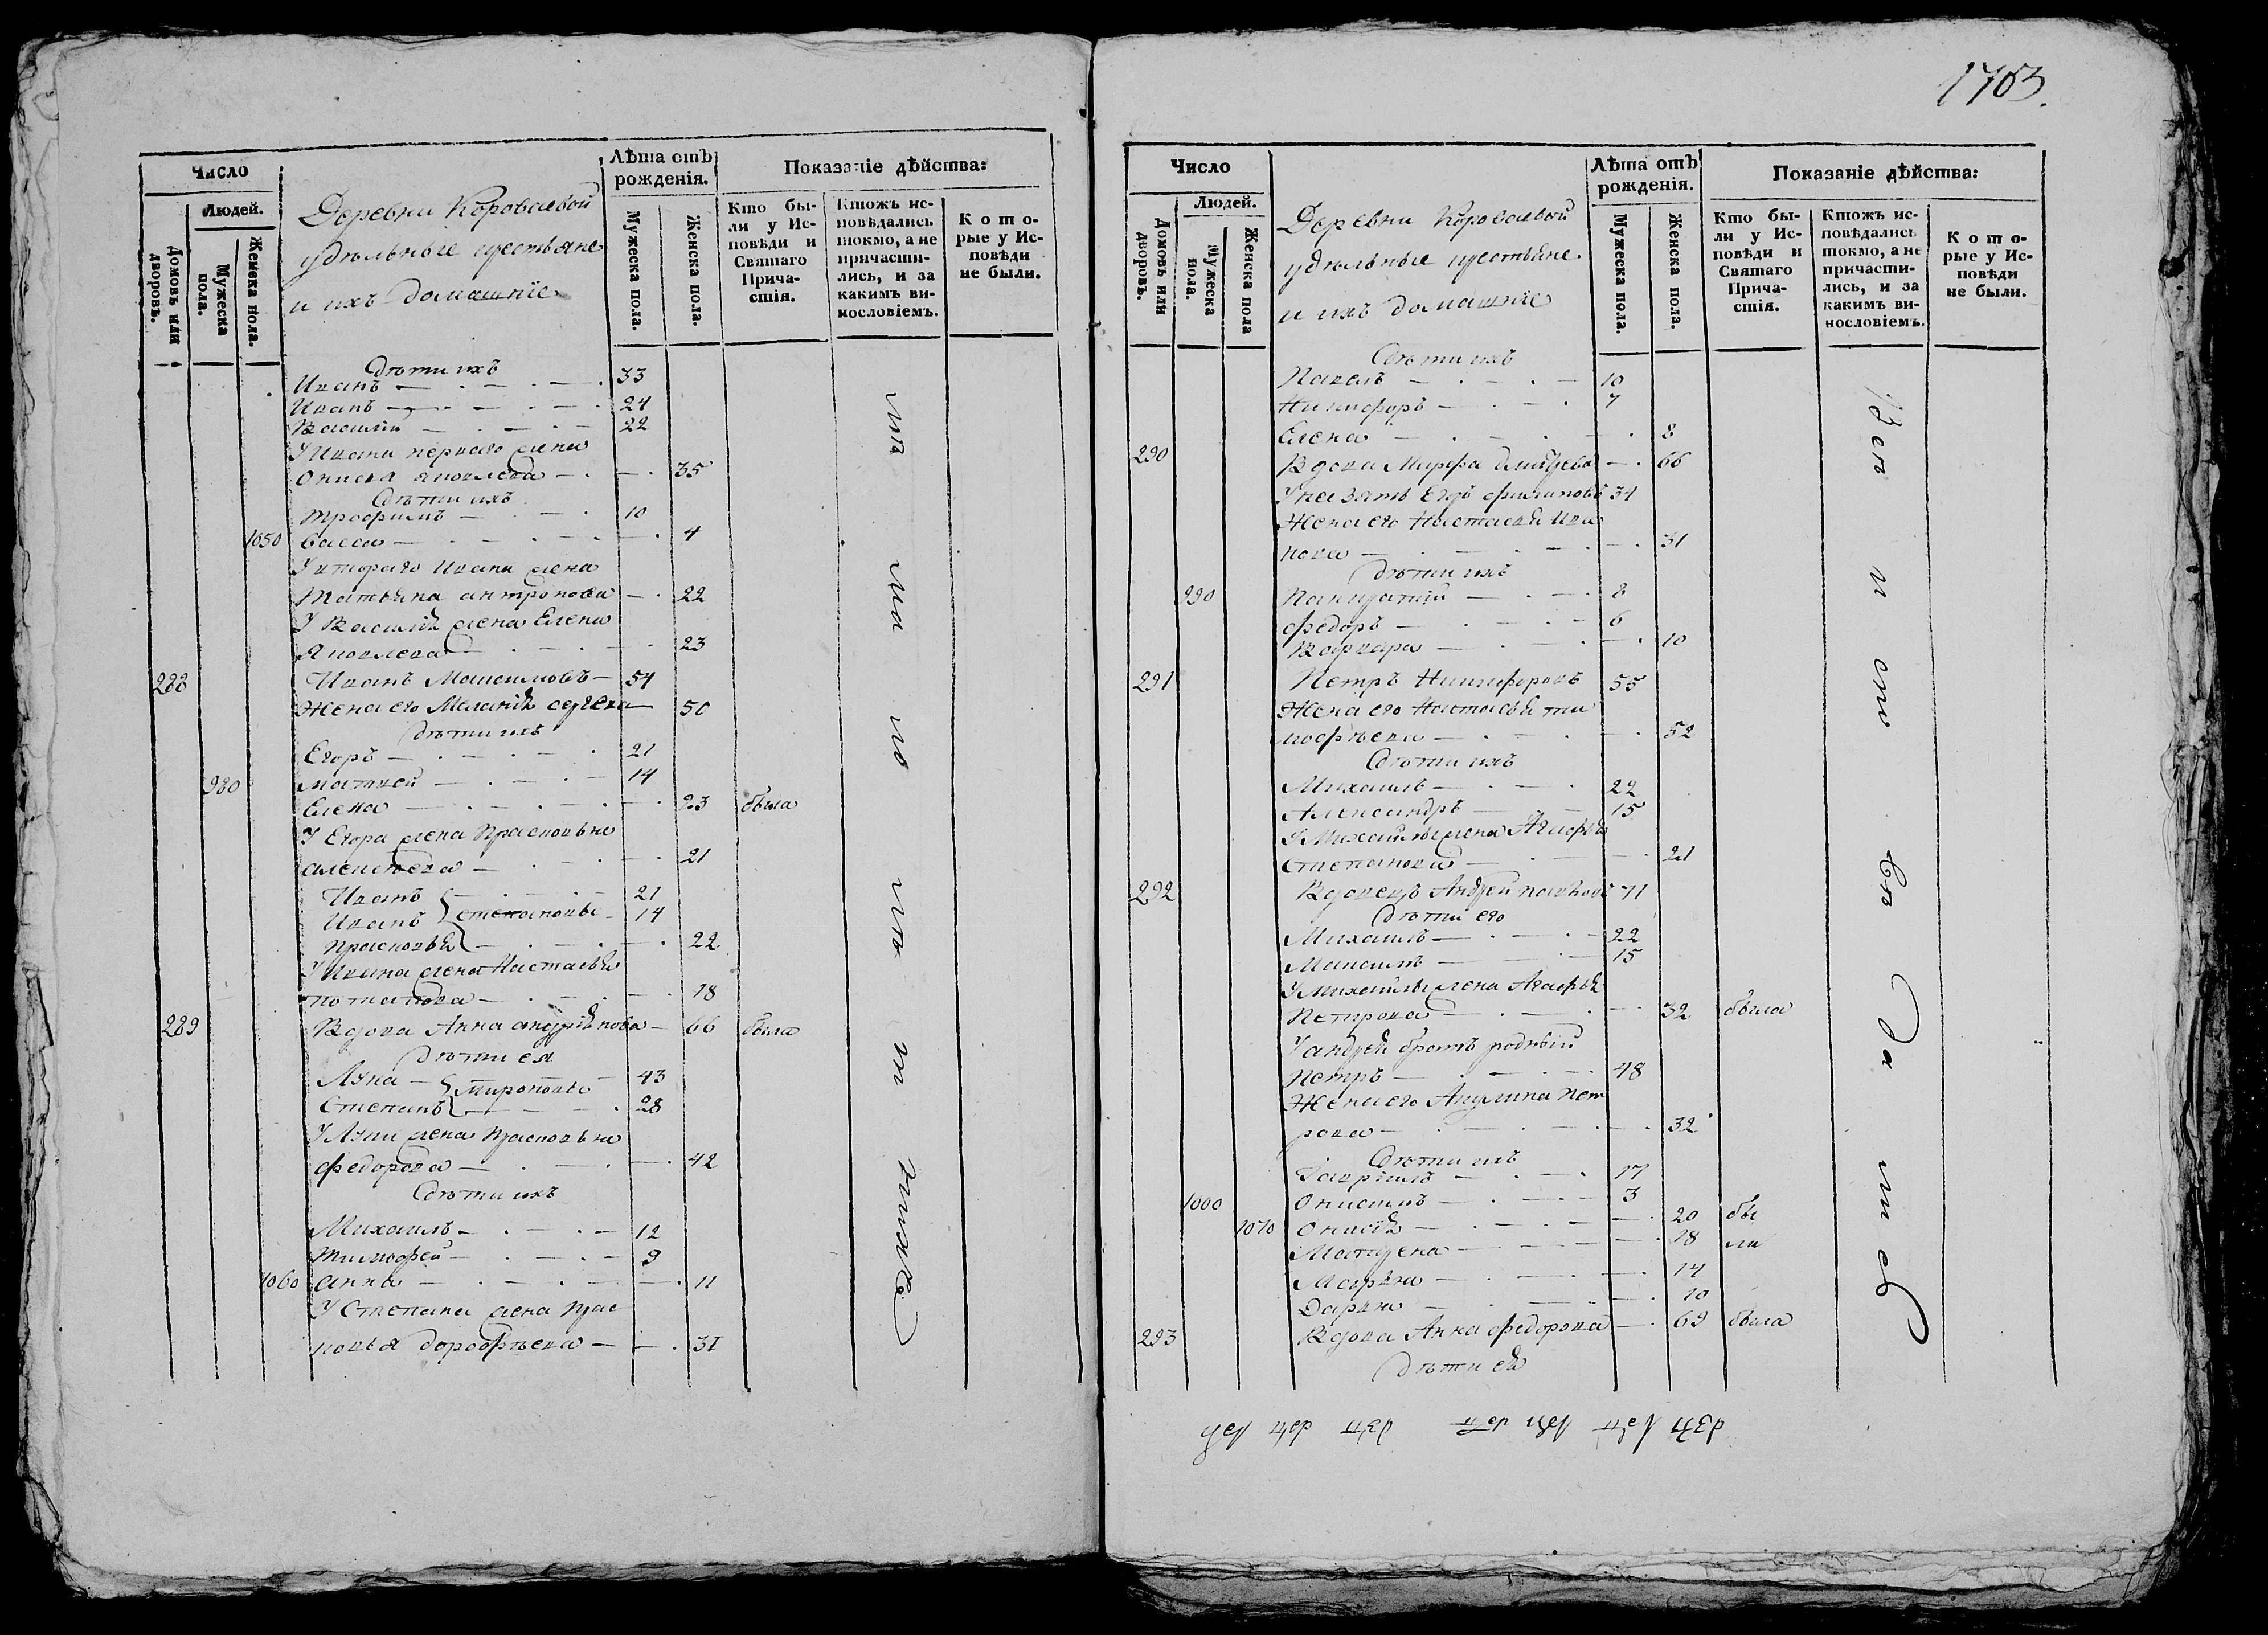 Число
Людей.
Домовъ или дворовъ.
Мужеска пола.
Женска пола.
Деревни Короваевой
удѣльные крестьяне
и ихъ домашніе
Лѣта отъ рожденія.
Мужеска пола.
Женска пола.
Показаніе дѣйства:
Кто бы-
ли у Ис-
повѣди и
Святаго
Прича-
стія.
Ктожъ ис-
повѣдались
токмо, а не
причасти-
лись, и за
какимъ ви-
нословіемъ.
Кото-
рые у Ис-
повѣди
не были.
дѣти ихъ
Иванъ 33
Иванъ 24
Василій 22
У Ивана перваго жена
35
Дѣти ихъ
Трофимъ 10
1050 4
У втораго Ивана жена
Татьяна антропова 22
У Василія жена Елена
Яковлева 23
288 Иванъ Максимовъ 54
Жена его Меланія сергеева 50
дѣти ихъ
Егоръ 21
980 матвей 14
Елена 23 была
У Егора жена Прасковья
алексѣева 21
Иванъ 21
Иванъ степановы 14
Прасковья 22
У Ивана жена Настасья
потапова 18
289 Вдова Анна андріянова 66 была
Дѣти ея
Лука 43
Степанъ мироновы 28
У Луки жена Прасковья
федорова 42
Дѣти ихъ
Михаилъ 12
Тимофей 9
1060 анна 11
У Степана жена Прас
ковья дорофѣева 31
1703.
Число
Людей.
Домовъ или дворовъ.
Мужеска пола.
Женска пола
Деревни Короваевой
удѣльные крестьяне
и ихъ домашніе
Лѣта отъ рожденія.
Мужеска пола.
Женска пола.
Показаніе дѣйства:
Кто бы-
ли у Ис-
повѣди и
Святаго
Прича-
стія.
Ктожъ ис-
повѣдались
токмо, а не
причасти-
лись, и за
какимъ ви-
нословіемъ.
Кото-
рые у Ис-
повѣди
не были.
Дѣти ихъ
Павелъ 10
Никифоръ 7
Елена 8
290 Вдова Марфа 66
зять филиповъ 34
Жена его Настасья Ива
нова 31
дѣти ихъ
990 Панкратій 8
федоръ 6
Варвара 10
291 Петръ Никифоровъ 55
Жена его Настасья ти
мофѣева 52
Дѣти ихъ
Михаилъ 22
Александръ 15
У Михайлы жена Агафья
Степанова 21
292 Вдовецъ Андрей 71
Дѣти его
Михаилъ 22
Максимъ 15
У Михайлы жена Агафья
Петрова 32 была
У андрея братъ родный
Петръ 48
Жена его Акулина Пет
рова 32
Дѣти ихъ
Гаврiилъ 17
1000 Онисимъ 3
1070 Онисія 20 бы
Матрена 18 ли
Марья 14
Дарья 10
293 Вдова Анна федорова 69 была
дѣти ея
цер цер цер цер цер цер цер